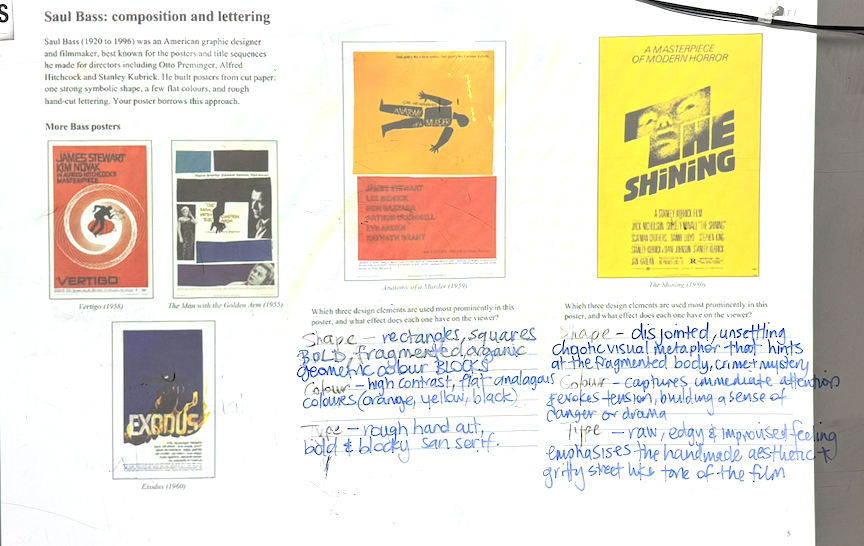 S
Saul Bass: composition and lettering
Saul Bass (1920 to 1996) was an American graphic designer
and filmmaker, best known for the posters and title sequences
he made for directors including Otto Preminger, Alfred
Hitchcock and Stanley Kubrick. He built posters from cut paper:
one strong symbolic shape, a few flat colours, and rough
hand-cut lettering. Your poster borrows this approach.
More Bass posters
JAMES STEWART
KIM NOVAK
IN ALFRED HITCHCOCK'S
MASTERPIECE
VERTIGO
Vertigo (1958)
THE MAN WITH THE GOLDEN ARM
The Man with the Golden Arm (1955)
EXODUS
Exodus (1960)
ANATOMY
of a MURDER
JAMES STEWART
LEE REMICK
BEN GAZZARA
ARTHUR O'CONNELL
EVE ARDEN
KATHRYN GRANT
Anatomy of a Murder (1959)
Which three design elements are used most prominently in this
poster, and what effect does each one have on the viewer?
Shape – rectangles, squares
BOLD, fragmented, organic
geometric colour BLOCKS
Colour – high contrast, flat analagous
colours (orange, yellow, black)
Type – rough hand cut,
bold & blocky san serif.
A MASTERPIECE
OF MODERN HORROR
THE
SHiNiNG
A STANLEY KUBRICK FILM
JACK NICHOLSON SHELLEY DUVALL "THE SHINING"
SCATMAN CROTHERS DANNY LLOYD STEPHEN KING
STANLEY KUBRICK & DIANE JOHNSON STANLEY KUBRICK
JAN HARLAN
R
The Shining (1980)
Which three design elements are used most prominently in this
poster, and what effect does each one have on the viewer?
Shape – disjointed, unsettling
chaotic visual metaphor that hints
at the fragmented body, crime + mystery
Colour – captures immediate attention
& evokes tension, building a sense of
danger or drama
Type – raw, edgy & improvised feeling
emphasises the handmade aesthetic +
gritty street like tone of the film
5